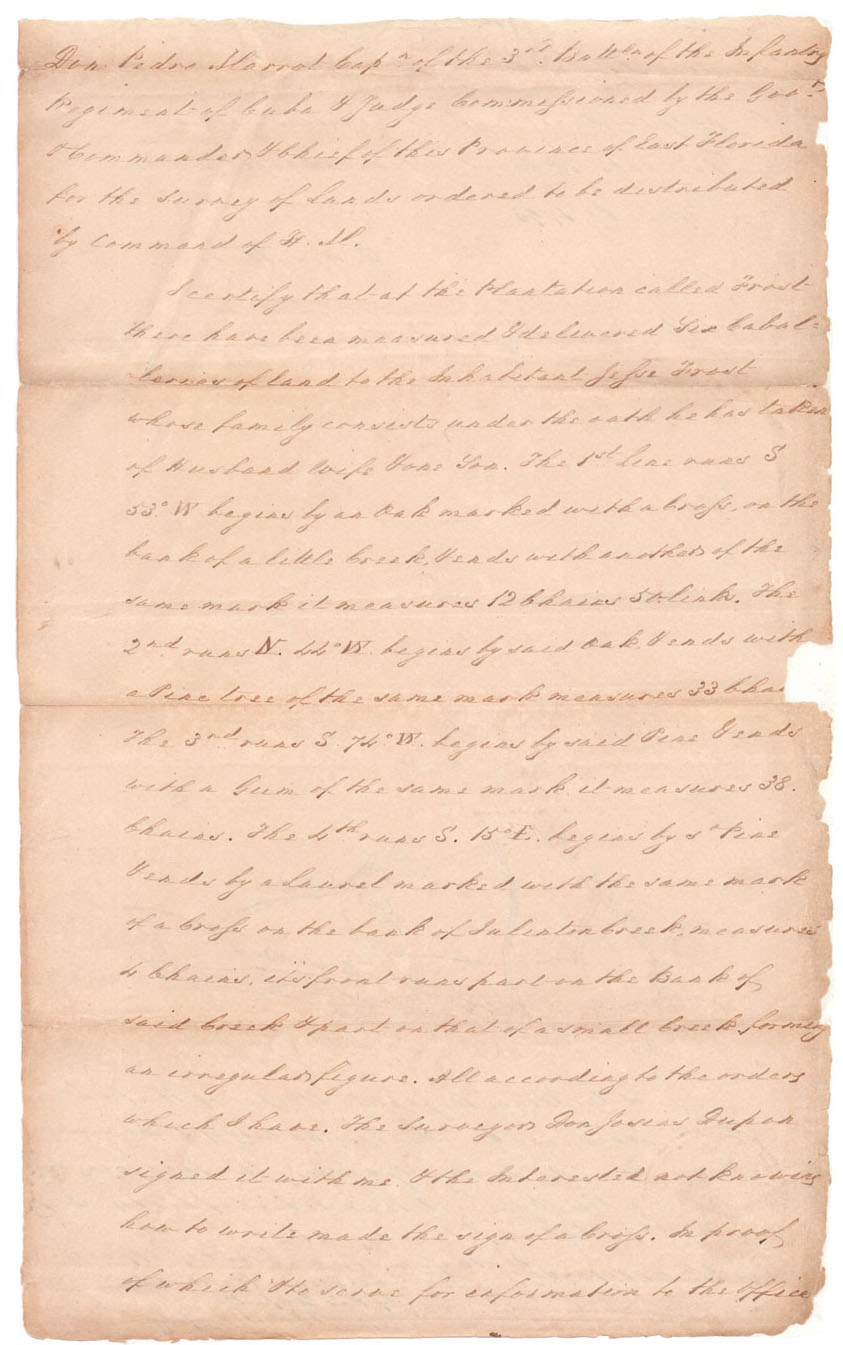 Don Pedro Marrot Capn of the 3rd Battn of the Infantry
Regiment of Cuba & Judge Commissioned by the Govr
& Commander & Chief of this Province of East Florida
for the Survey of Lands ordered to be distributed
by Command of H. M.
I certify that at the Plantation called Frost
there have been measured & delivered Six Cabal=
leries of land to the Inhabitant Jesse Frost
whose family consists under the oath he has taken
of Husband Wife & one Son. The 1st line runs S
53° W begins by an Oak marked with a Cross, on the
bank of a little Creek, & ends with another of the
same mark it measures 12 Chains 50 link. The
2nd runs N. 44° W. begins by said Oak & ends with
a Pine tree of the same mark measures 33 Chai
The 3rd runs S. 74° W. begins by said Pine & ends
with a Gum of the same mark it measures 38.
Chains. The 4th runs S. 15° E. begins by sd Pine
& ends by a Laurel marked with the same mark
of a Cross on the bank of Julinton Creek, measures
4 Chains, its front runs part on the Bank of
said Creek & part on that of a small Creek forming
an irregular figure. All according to the orders
which I have. The Surveyor Don Josias Dupon
signed it with me & the Interested not knowing
how to write made the sign of a Cross. In proof
of which & to serve for information to the Office